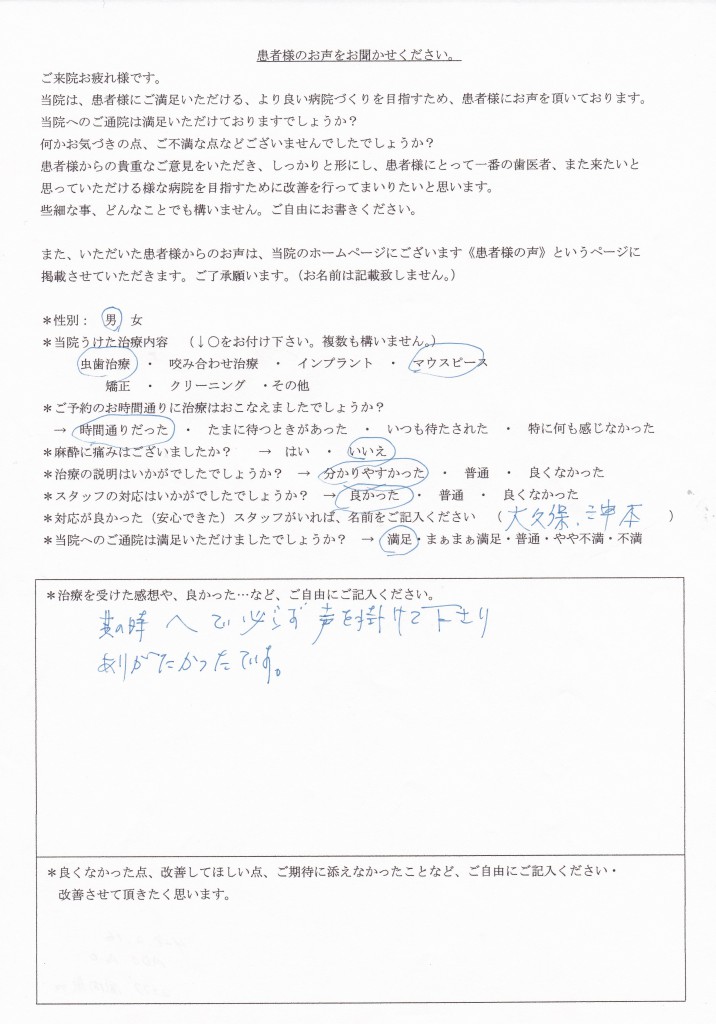 患者様のお声をお聞かせください。
ご来院お疲れ様です。
当院は、患者様にご満足いただける、より良い病院づくりを目指すため、患者様にお声を頂いております。
当院へのご通院は満足いただけておりますでしょうか?
何かお気づきの点、ご不満な点などございませんでしたでしょうか?
患者様からの貴重なご意見をいただき、しっかりと形にし、患者様にとって一番の歯医者、また来たいと
思っていただける様な病院を目指すために改善を行ってまいりたいと思います。
些細な事、どんなことでも構いません。ご自由にお書きください。
また、いただいた患者様からのお声は、当院のホームページにございます《患者様の声》というページに
掲載させていただきます。ご了承願います。(お名前は記載致しません。)
*性別: 男 女
*当院うけた治療内容 (↓○をお付け下さい。複数も構いません。)
虫歯治療 ・ 咬み合わせ治療 ・ インプラント ・ マウスピース
矯正 ・ クリーニング ・その他
*ご予約のお時間通りに治療はおこなえましたでしょうか?
→ 時間通りだった ・ たまに待つときがあった ・ いつも待たされた ・ 特に何も感じなかった
*麻酔に痛みはございましたか? → はい ・ いいえ
*治療の説明はいかがでしたでしょうか? → 分かりやすかった ・ 普通 ・ 良くなかった
*スタッフの対応はいかがでしたでしょうか? → 良かった ・ 普通 ・ 良くなかった
*対応が良かった(安心できた)スタッフがいれば、名前をご記入ください (大久保、 本 )
*当院へのご通院は満足いただけましたでしょうか? → 満足・まぁまぁ満足・普通・やや不満・不満
*治療を受けた感想や、良かった…など、ご自由にご記入ください。
の時 へで必らず声を掛けて下さり
ありがたかったです。
*良くなかった点、改善してほしい点、ご期待に添えなかったことなど、ご自由にご記入ください・
改善させて頂きたく思います。